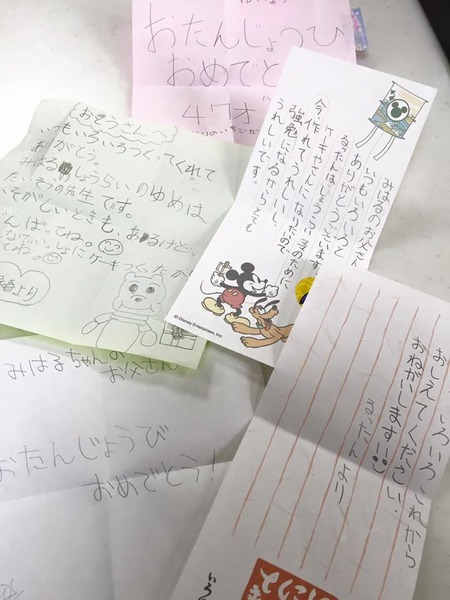 おたんじょうび
おめでと
47才
おとうさんへ
いつもいろいろつくってくれて
ありがとう。
みはるのしょうらいのゆめは、
たいそうの先生です。
いそがしいときも、あるけど、
春より
みはるのお父さんへ
いつもいろいろと
ありがとうございます。
るったんはしょうらい
ケーキやさんになりたいので
今作れてうれしい
勉強になるからとも
うれしいです。
© Disney Enterprises, Inc.
いろいろこれから
おしえてください。
おねがいします!!
るったんより
みはるちゃんの
お父さん
おたんじょうび
おめでとう!